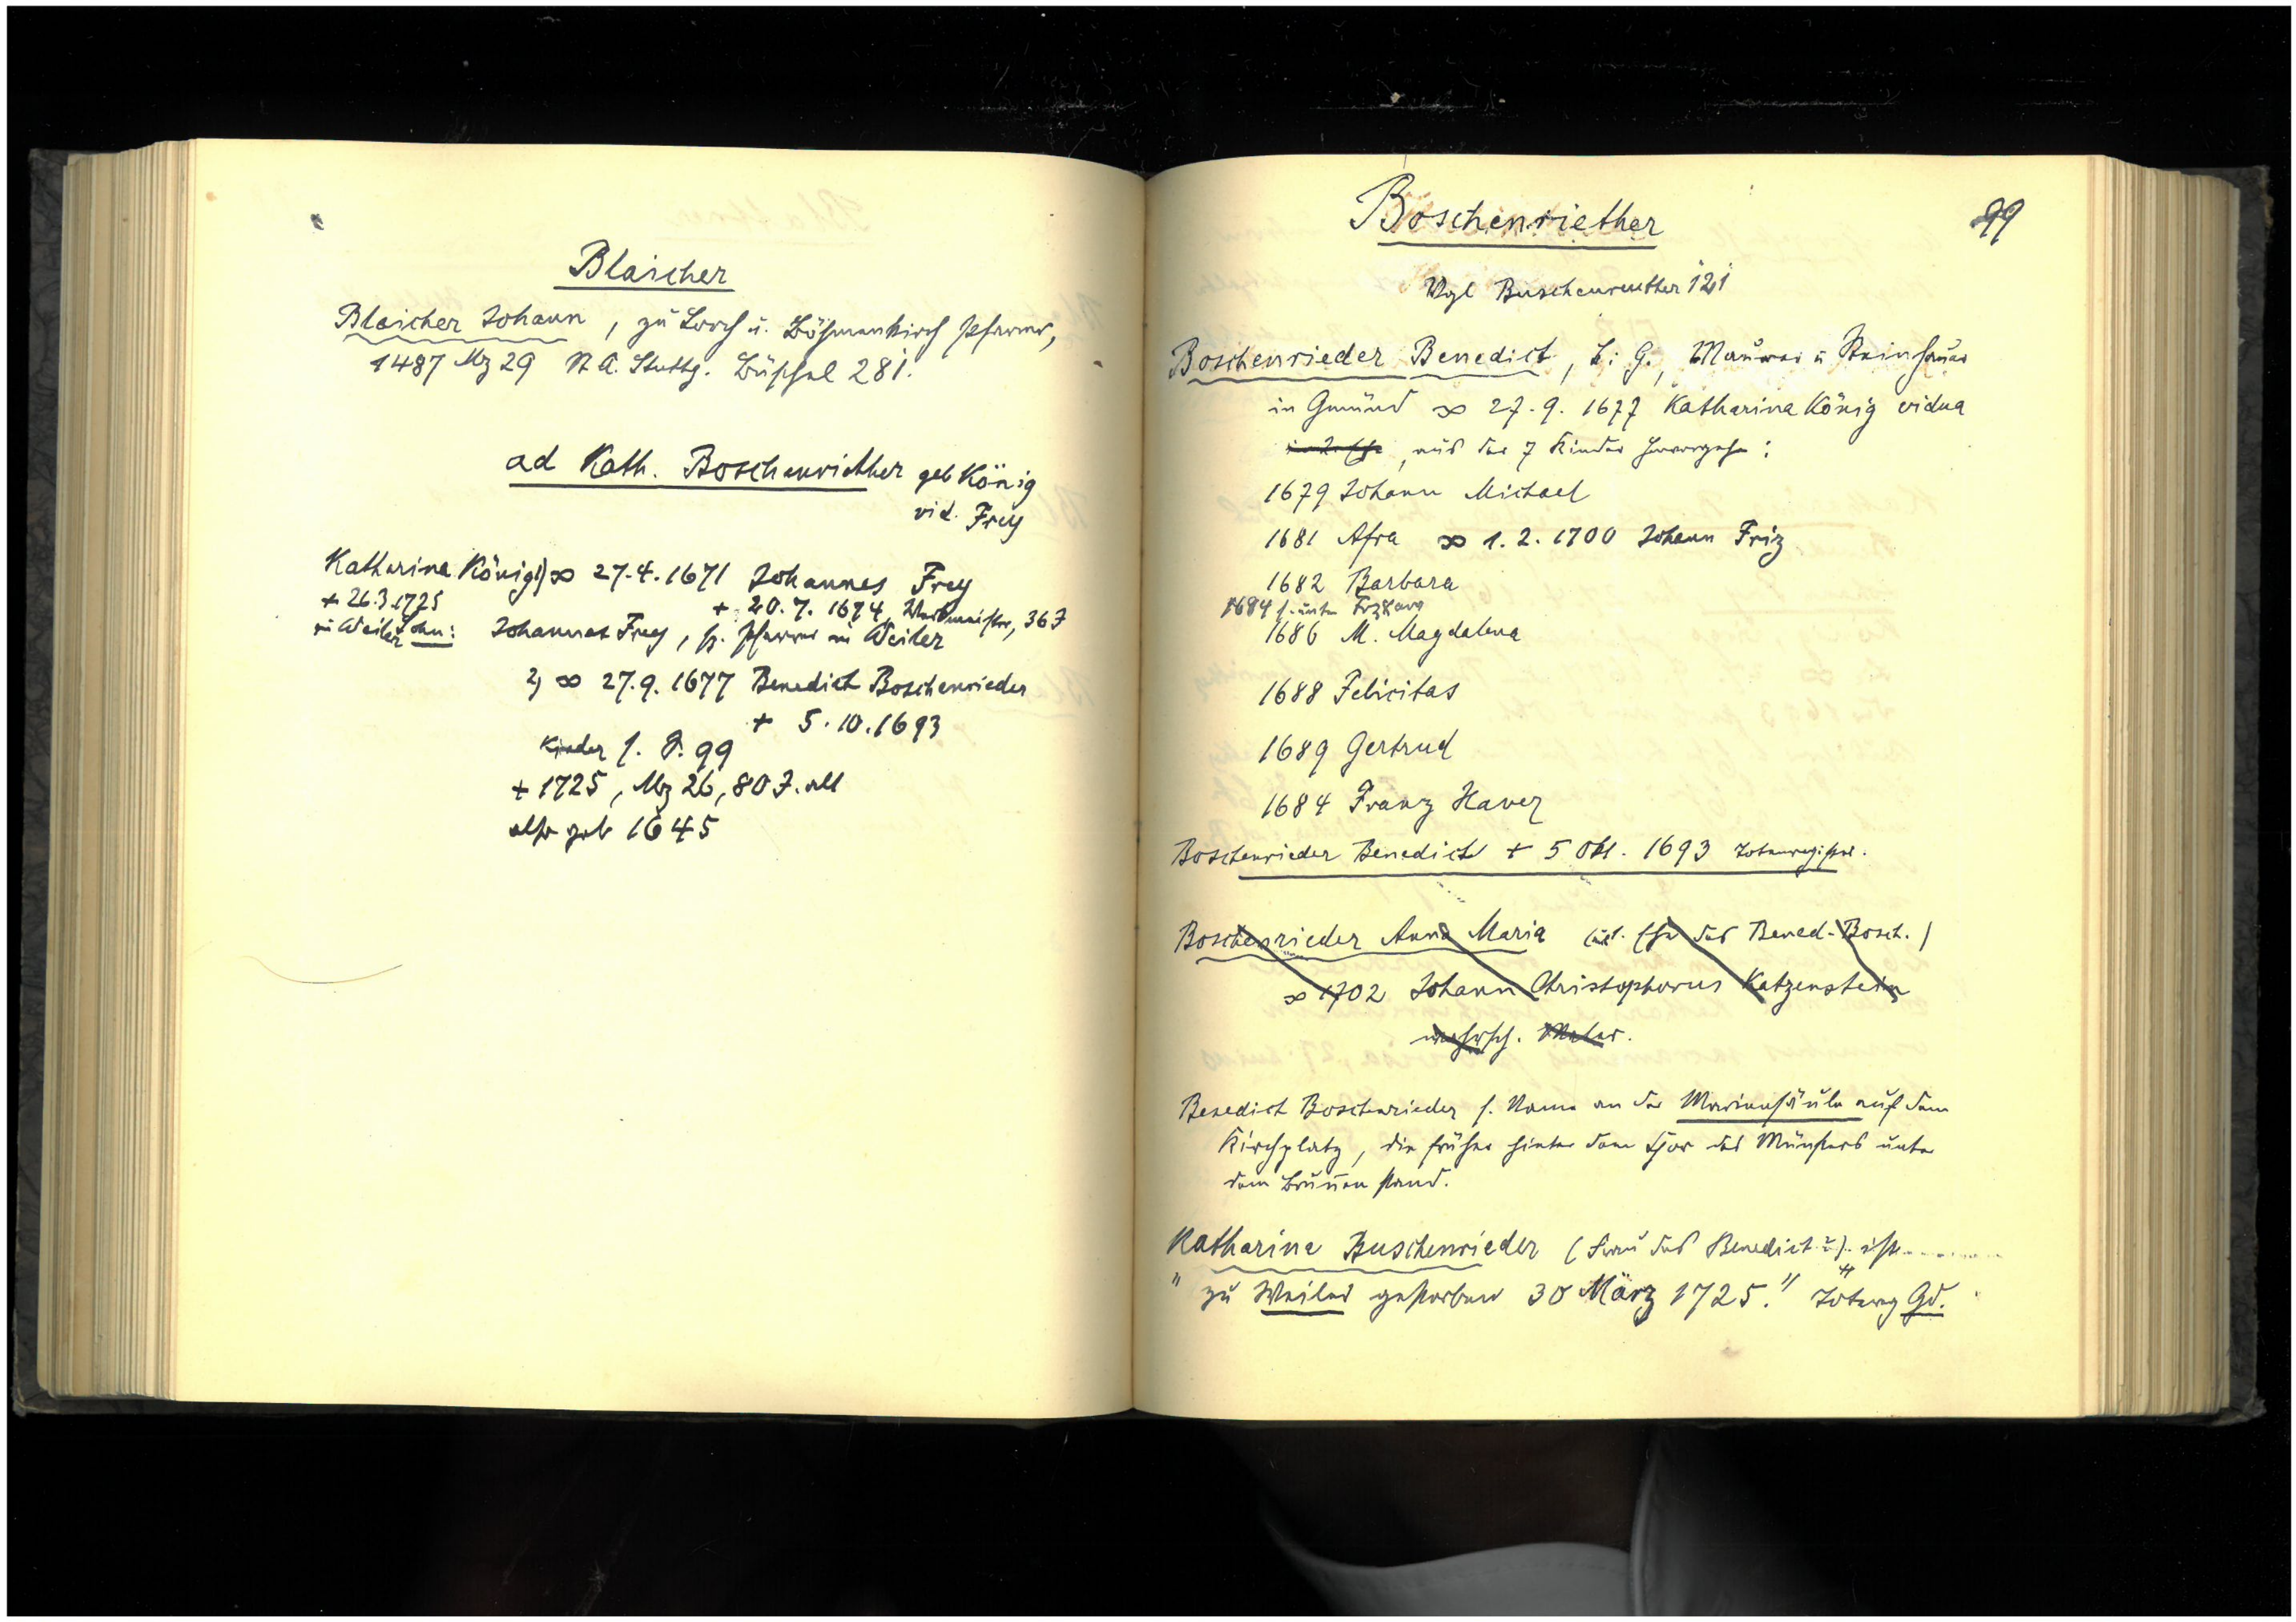 Blaicher
Blaicher Johann, zu Lorch u. Böhmenkirch Pfarrer,
1487 Mz 29 St A. Stuttg. Büschel 281.
ad Kath. Boschenriether geb König
vid. Frey
Katharina König 1) ∞ 27.4.1671 Johannes Frey
+ 26.3.1725 + 20.7.1674, Werkmeister, 36 J
in Weiler Sohn: Johannes Frey, sp. Pfarrer in Weiler
2) ∞ 27.9.1677 Benedict Boschenrieder
+ 5.10.1693
Kinder s. S. 99
+ 1725, Mz 26, 80 J. alt
also geb 1645
99
Boschenriether
Vgl Buschenreuther 121
Boschenrieder Benedict, L: G., Maurer u Steinhauer
in Gmünd ∞ 27.9.1677 Katharina König vidua
in 2. Ehe, aus der 7 Kinder hervorgehen:
1679 Johann Michael
1681 Afra ∞ 1.2.1700 Johann Friz
1682 Barbara
1684 s. unten Frz Xaver
1686 M. Magdalena
1688 Felicitas
1689 Gertrud
1684 Franz Xaver
Boschenrieder Benedict + 5 Okt. 1693 Totenregister.
Boschenrieder Anna Maria (Ehe des Bened. Bosch.)
∞ 1702 Johann Christophorus Katzenstein
wahrsch. Maler.
Benedict Boschenrieder s. Name an der Mariensäule auf dem
Kirchplatz, die früher hinter dem Chor des Münsters unter
dem Brunnen stand.
Katharina Buschenrieder (Frau des Benedict?) ist
" zu Weiler gestorben 30 März 1725." Totenreg Gd.